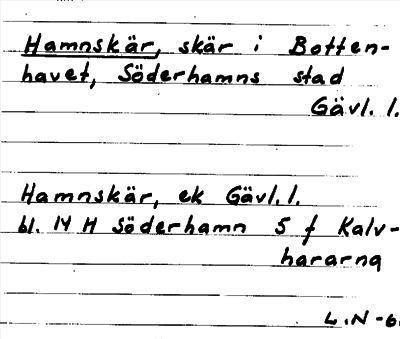 Hamnskär, skär i Botten-
havet, Söderhamns stad
Gävl. l.
Hamnskär, ek Gävl. l.
bl. 14 H Söderhamn 5 f Kalv-
hararna
L.N-6